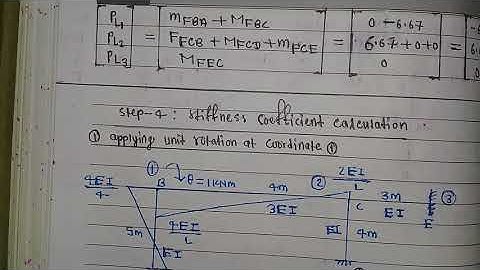 PL1 = MFBA + MFBC = 0 - 6.67 =
PL2 FFCB + MFCD + MFCE 6.67 + 0 + 0
PL3 MFEC 0
Step-4 : Stiffness coefficient calculation :
① applying unit rotation at coordinate ①
① θ = 1KNm ② 2EI/L
4EI/4 B 4m C 3m ③
3EI EI E
5m 4EI/L EI 4m
EI